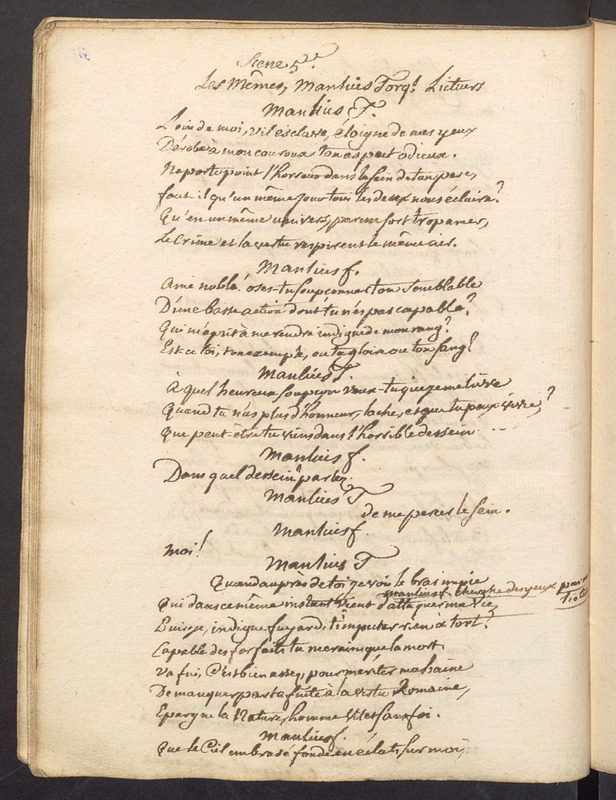 Scene 5.e
Les Mêmes, Manlius Torq.t Licteurs
Manlius T.
Loin de moi, vil esclave, éloigne de mes yeux
Dérobe à mon couroux ton aspect odieux.
Ne porte point l'horreur dans le sein de ton pere,
faut il qu'un même jour tous les deux nous éclaire?
Qu'en un même univers, par un sort trop amer,
Le Crime et la vertu respirent le même air.
Manlius f.
Ame noble! oses-tu soupçonner ton semblable
D'une basse action dont tu n'es pas capable?
Qui m'aprit à me rendre indigne de mon rang?
Est ce toi, ton exemple, ou ta gloire ou ton sang?
Manlius T.
À quel heureux soupçon veux-tu que je me livre
Quand tu n'as plus d'honneur, lache, et que tu peux vivre?
Que peut-être tu viens dans l'horrible dessein ...
Manlius f.
Dans quel dessein? parlez.
Manlius T
de me percer le sein.
Manlius f.
Moi!
Manlius T
Quand auprès de toi je vois le bras impie
Manlius f cherche des yeux
Qui dans ce même instant vient d'attaquer ma vie,
Puis-je, indigne fuyard, t'imputer rien à tort?
Capable des forfaits tu ne crains que la mort.
Va fui, C'est bien assez, pour mériter ma haine
De manquer par ta fuite à la vertu Romaine,
Epargne la Nature, homme vil et sans foi.
Manlius f.
Que le Ciel embrasé fonde en éclats sur moi,